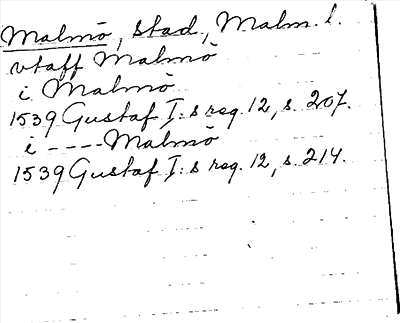 Malmö, stad, Malm. l.
vtaff Malmö
i Malmö
1539 Gustaf I:s reg. 12, s. 207.
i - - - - Malmö
1539 Gustaf I:s reg. 12, s. 214.